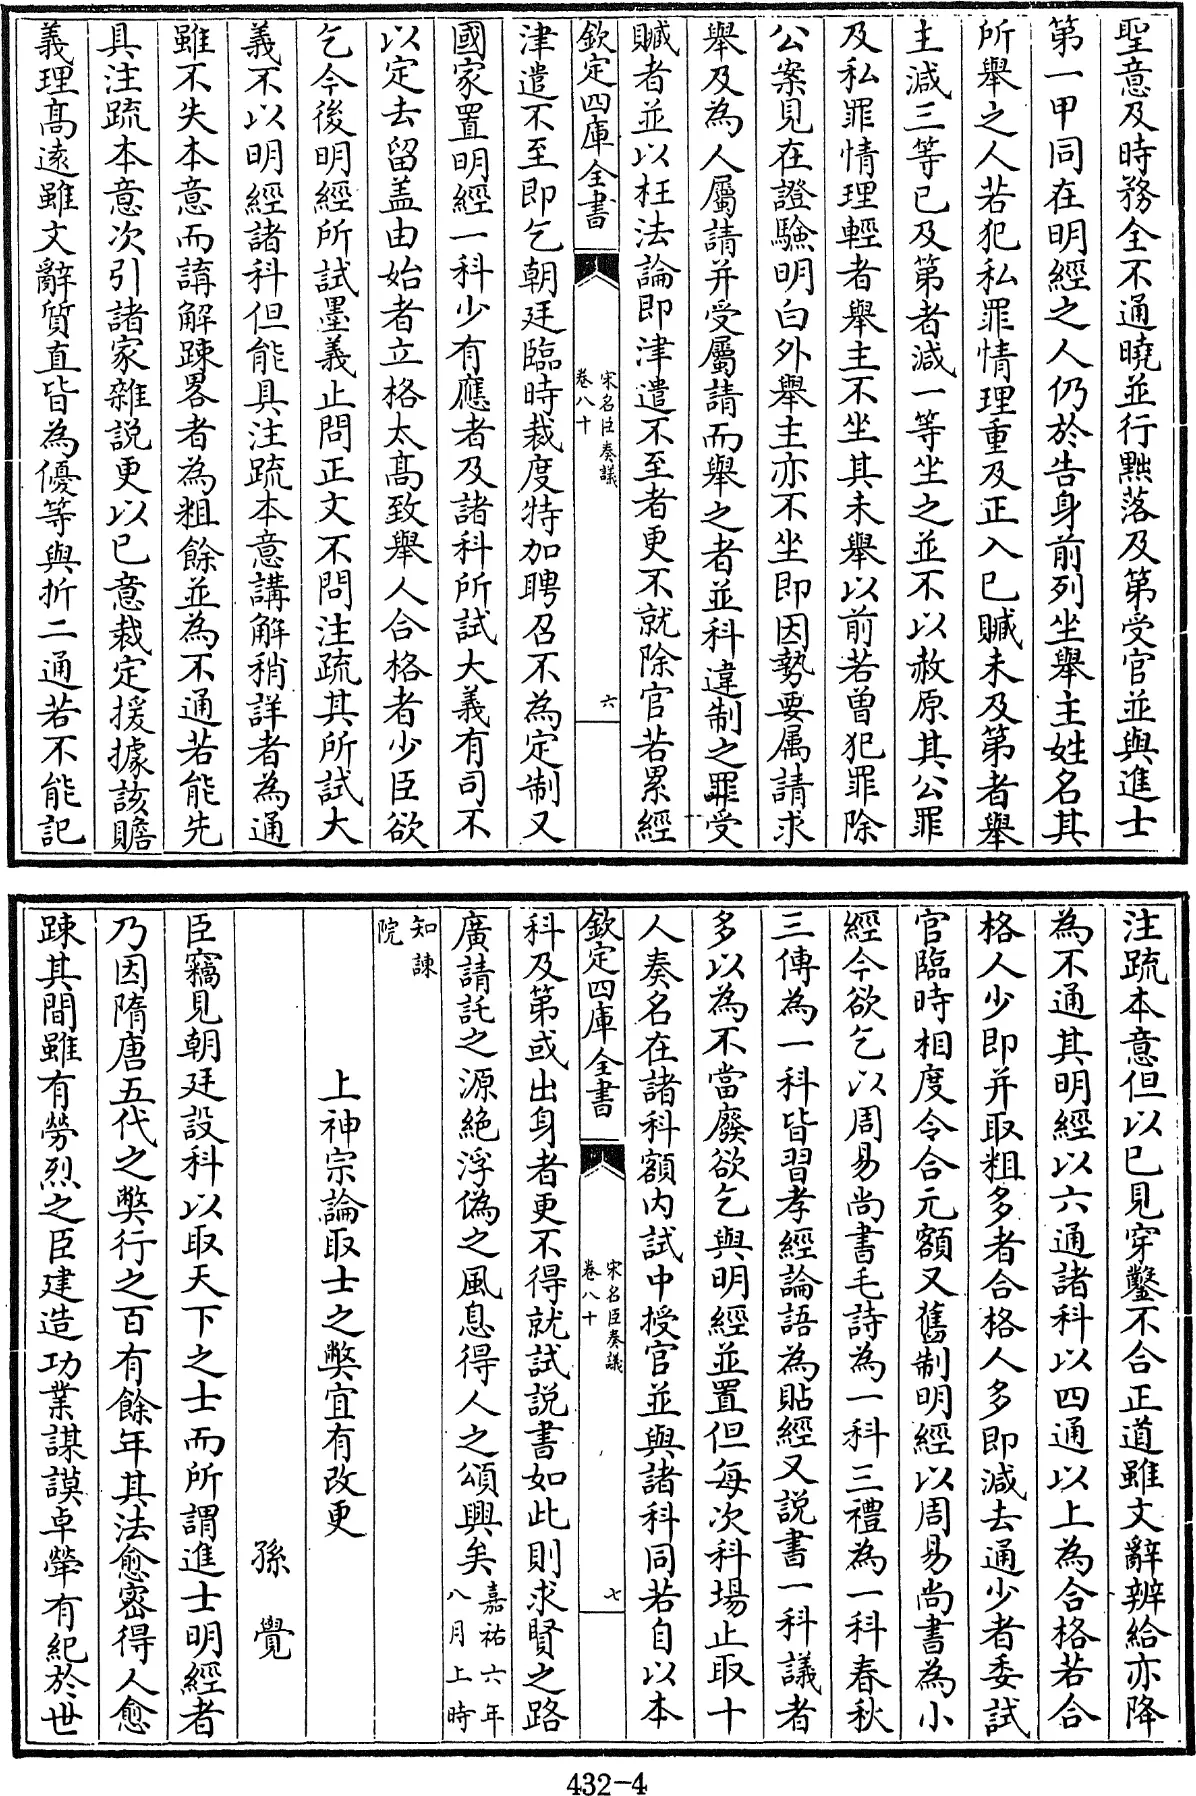 聖意及時務全不通曉並行黜落及第受官並與進士
第一甲同在明經之人仍於告身前列坐舉主姓名其
所舉之人若犯私罪情理重及正入已贓未及第者舉
主減三等已及第者減一等坐之並不以赦原其公罪
及私罪情理輕者舉主不坐其未舉以前若曾犯罪除
公案見在證驗明白外舉主亦不坐即因勢要属請求
舉及為人屬請并受屬請而舉之者並科違制之罪受
贓者並以枉法論即津遣不至者更不就除官若累經
欽定四庫全書
宋名臣奏議
卷八十
六
津遣不至即乞朝廷臨時裁度特加聘召不為定制又
國家置明經一科少有應者及諸科所試大義有司不
以定去留盖由始者立格太髙致舉人合格者少臣欲
乞今後明經所試墨義止問正文不問注疏其所試大
義不以明經諸科但能具注疏本意講解稍詳者為通
雖不失本意而講解踈畧者為粗餘並為不通若能先
具注疏本意次引諸家雜説更以已意裁定援據該贍
義理髙遠雖文辭質直皆為優等與折二通若不能記
注疏本意但以已見穿鑿不合正道雖文辭辨給亦降
為不通其明經以六通諸科以四通以上為合格若合
格人少即并取粗多者合格人多即減去通少者委試
官臨時相度令合元額又舊制明經以周易尚書為小
經今欲乞以周易尚書毛詩為一科三禮為一科春秋
三傳為一科皆習孝經論語為貼經又説書一科議者
多以為不當廢欲乞與明經並置但每次科場止取十
人奏名在諸科額内試中授官並與諸科同若自以本
欽定四庫全書
宋名臣奏議
卷八十
七
科及第或出身者更不得就試説書如此則求賢之路
廣請託之源絶浮偽之風息得人之頌興矣嘉祐六年八月上時
知諫院
上神宗論取士之弊宜有改更
孫覺
臣竊見朝廷設科以取天下之士而所謂進士明經者
乃因隋唐五代之弊行之百有餘年其法愈密得人愈
踈其間雖有勞烈之臣建造功業謀謨卓犖有紀於世
432-4